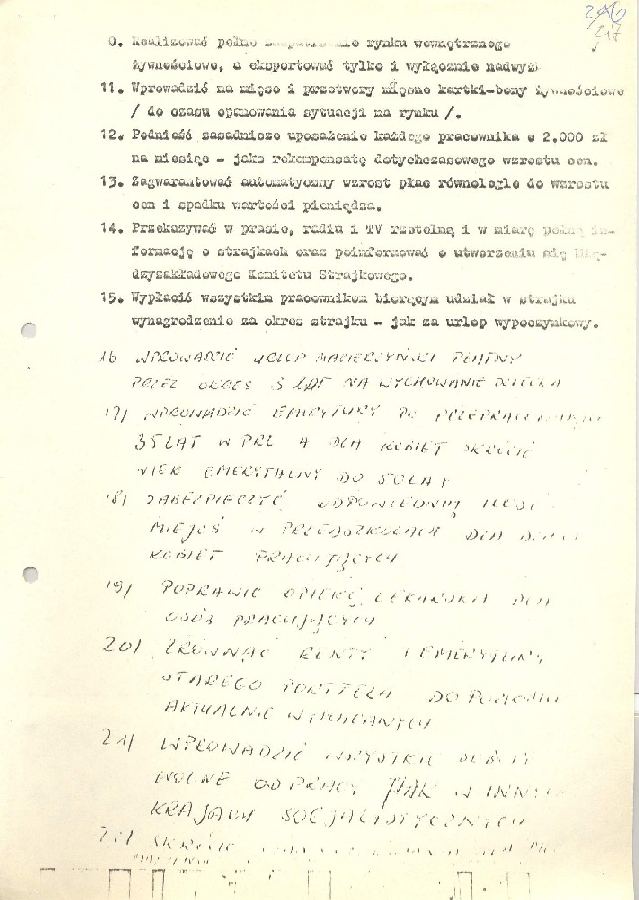 217
0. Realizować pełne rynku wewnętrznego
żywnościowe, a eksportować tylko i wyłącznie
11. Wprowadzić na mięso i przetwory mięsne kartki-bony żywnościowe
/ do czasu opanowania sytuacji na rynku /.
12. Podnieść zasadnicze uposażenie każdego pracownika o 2.000 zł
na miesiąc - jako rekompensatę dotychczasowego wzrostu cen.
13. Zagwarantować automatyczny wzrost płac równolegle do wzrostu
cen i spadku wartości pieniądza.
14. Przekazywać w prasie, radiu i TV rzetelną i w miarę pełną in-
formację o strajkach oraz poinformować o utworzeniu się Mię-
dzyzakładowego Komitetu Strajkowego.
15. Wypłacić wszystkim pracownikom biorącym udział w strajku
wynagrodzenie za okres strajku - jak za urlop wypoczynkowy.
16 WPROWADZIĆ URLOP MACIERZYŃSKI PŁATNY
PRZEZ OKRES 3 LAT NA WYCHOWANIE DZIECKA
17) WPROWADZIĆ EMERYTURY PO
35 LAT W PRL A DLA KOBIET SKRÓCIĆ
WIEK EMERYTALNY DO 50 LAT
18) ZABEZPIECZYĆ ODPOWIEDNIĄ
MIEJSC W PRZEDSZKOLACH DLA DZIECI
KOBIET PRACUJĄCYCH
19) POPRAWIĆ OPIEKĘ LEKARSKĄ DLA
OSÓB PRACUJĄCYCH
20) ZRÓWNAĆ RENTY I EMERYTURY
STAREGO PORTFELA DO POZIOMU
AKTUALNIE WYPŁACANYCH
21) WPROWADZIĆ WSZYSTKIE SOBOTY
WOLNE OD PRACY JAK W INNYCH
KRAJACH SOCJALISTYCZNYCH
22) SKRÓCIĆ